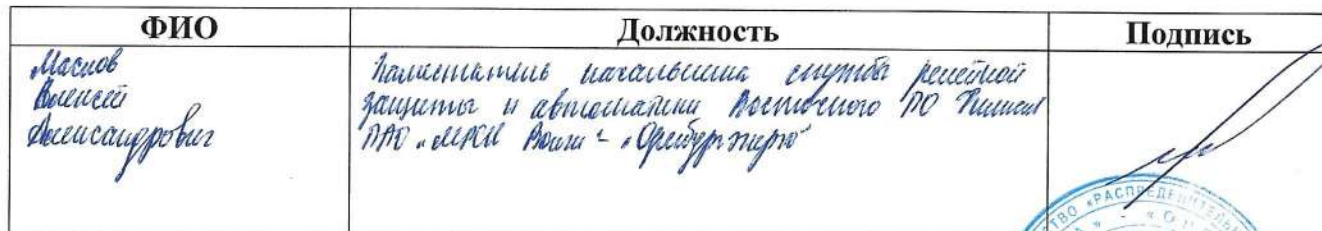 ФИО
Должность
Подпись
Маслов
Алексей
Александрович
Заместитель начальника службы релейной
защиты и автоматики Восточного ПО Филиал
ПАО „МРСК Волги" - „Оренбургэнерго"
ТВО «РАСПРЕДЕЛИТЕЛЬН